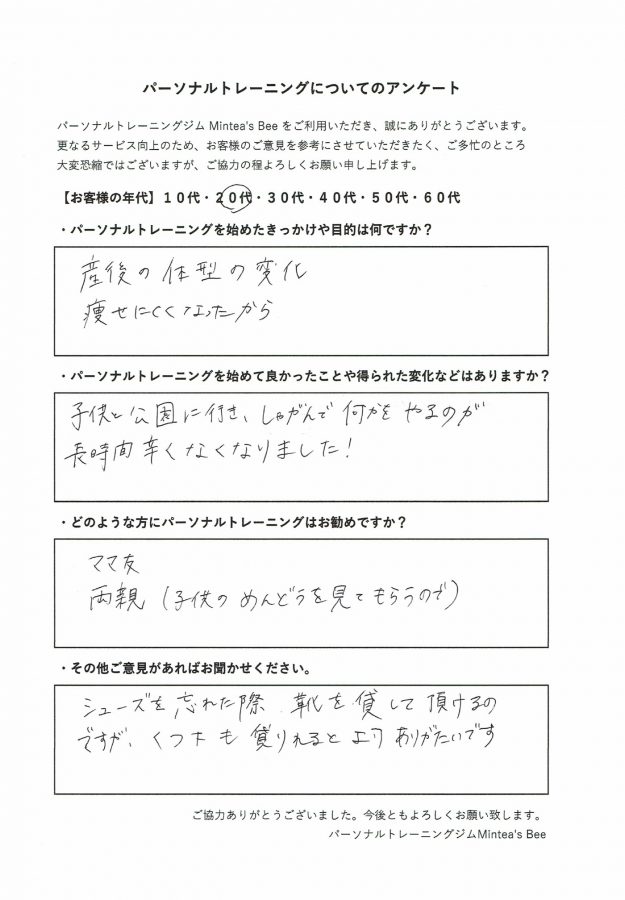 パーソナルトレーニングについてのアンケート
パーソナルトレーニングジム Mintea's Bee をご利用いただき、誠にありがとうございます。
更なるサービス向上のため、お客様のご意見を参考にさせていただきたく、ご多忙のところ
大変恐縮ではございますが、ご協力の程よろしくお願い申し上げます。
【お客様の年代】１０代・２０代・３０代・４０代・５０代・６０代
・パーソナルトレーニングを始めたきっかけや目的は何ですか？
産後の体型の変化
痩せにくくなったから
・パーソナルトレーニングを始めて良かったことや得られた変化などはありますか？
子供と公園に行き、しゃがんで何かをやるのが
長時間辛くなくなりました！
・どのような方にパーソナルトレーニングはお勧めですか？
ママ友
両親（子供のめんどうを見てもらうので）
・その他ご意見があればお聞かせください。
シューズを忘れた際 靴を貸して頂けるの
ですが、くつ下も貸りれるとよりありがたいです
ご協力ありがとうございました。今後ともよろしくお願い致します。
パーソナルトレーニングジムMintea's Bee